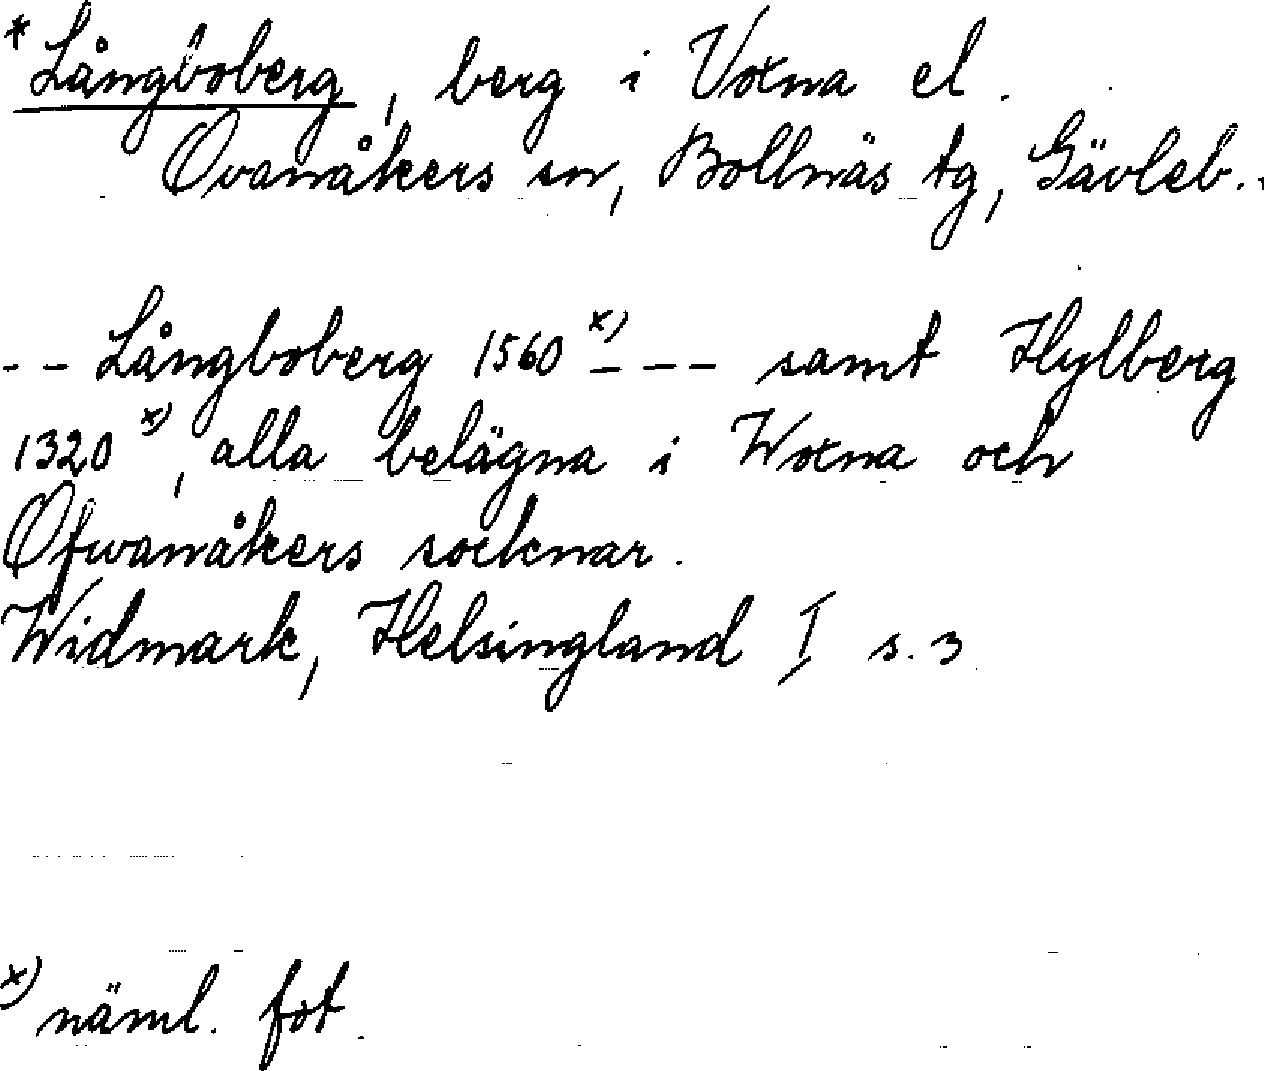 * Långboberg, berg i Voxna el.
Ovanåkers sn, Bollnäs tg, Gävleb..
- - Långboberg 1560 x) - - - samt Hylberg
1320 x), alla belägna i Woxna och
Ofwanåkers socknar.
Widmark, Helsingland I s. 3
x) näml. fot.